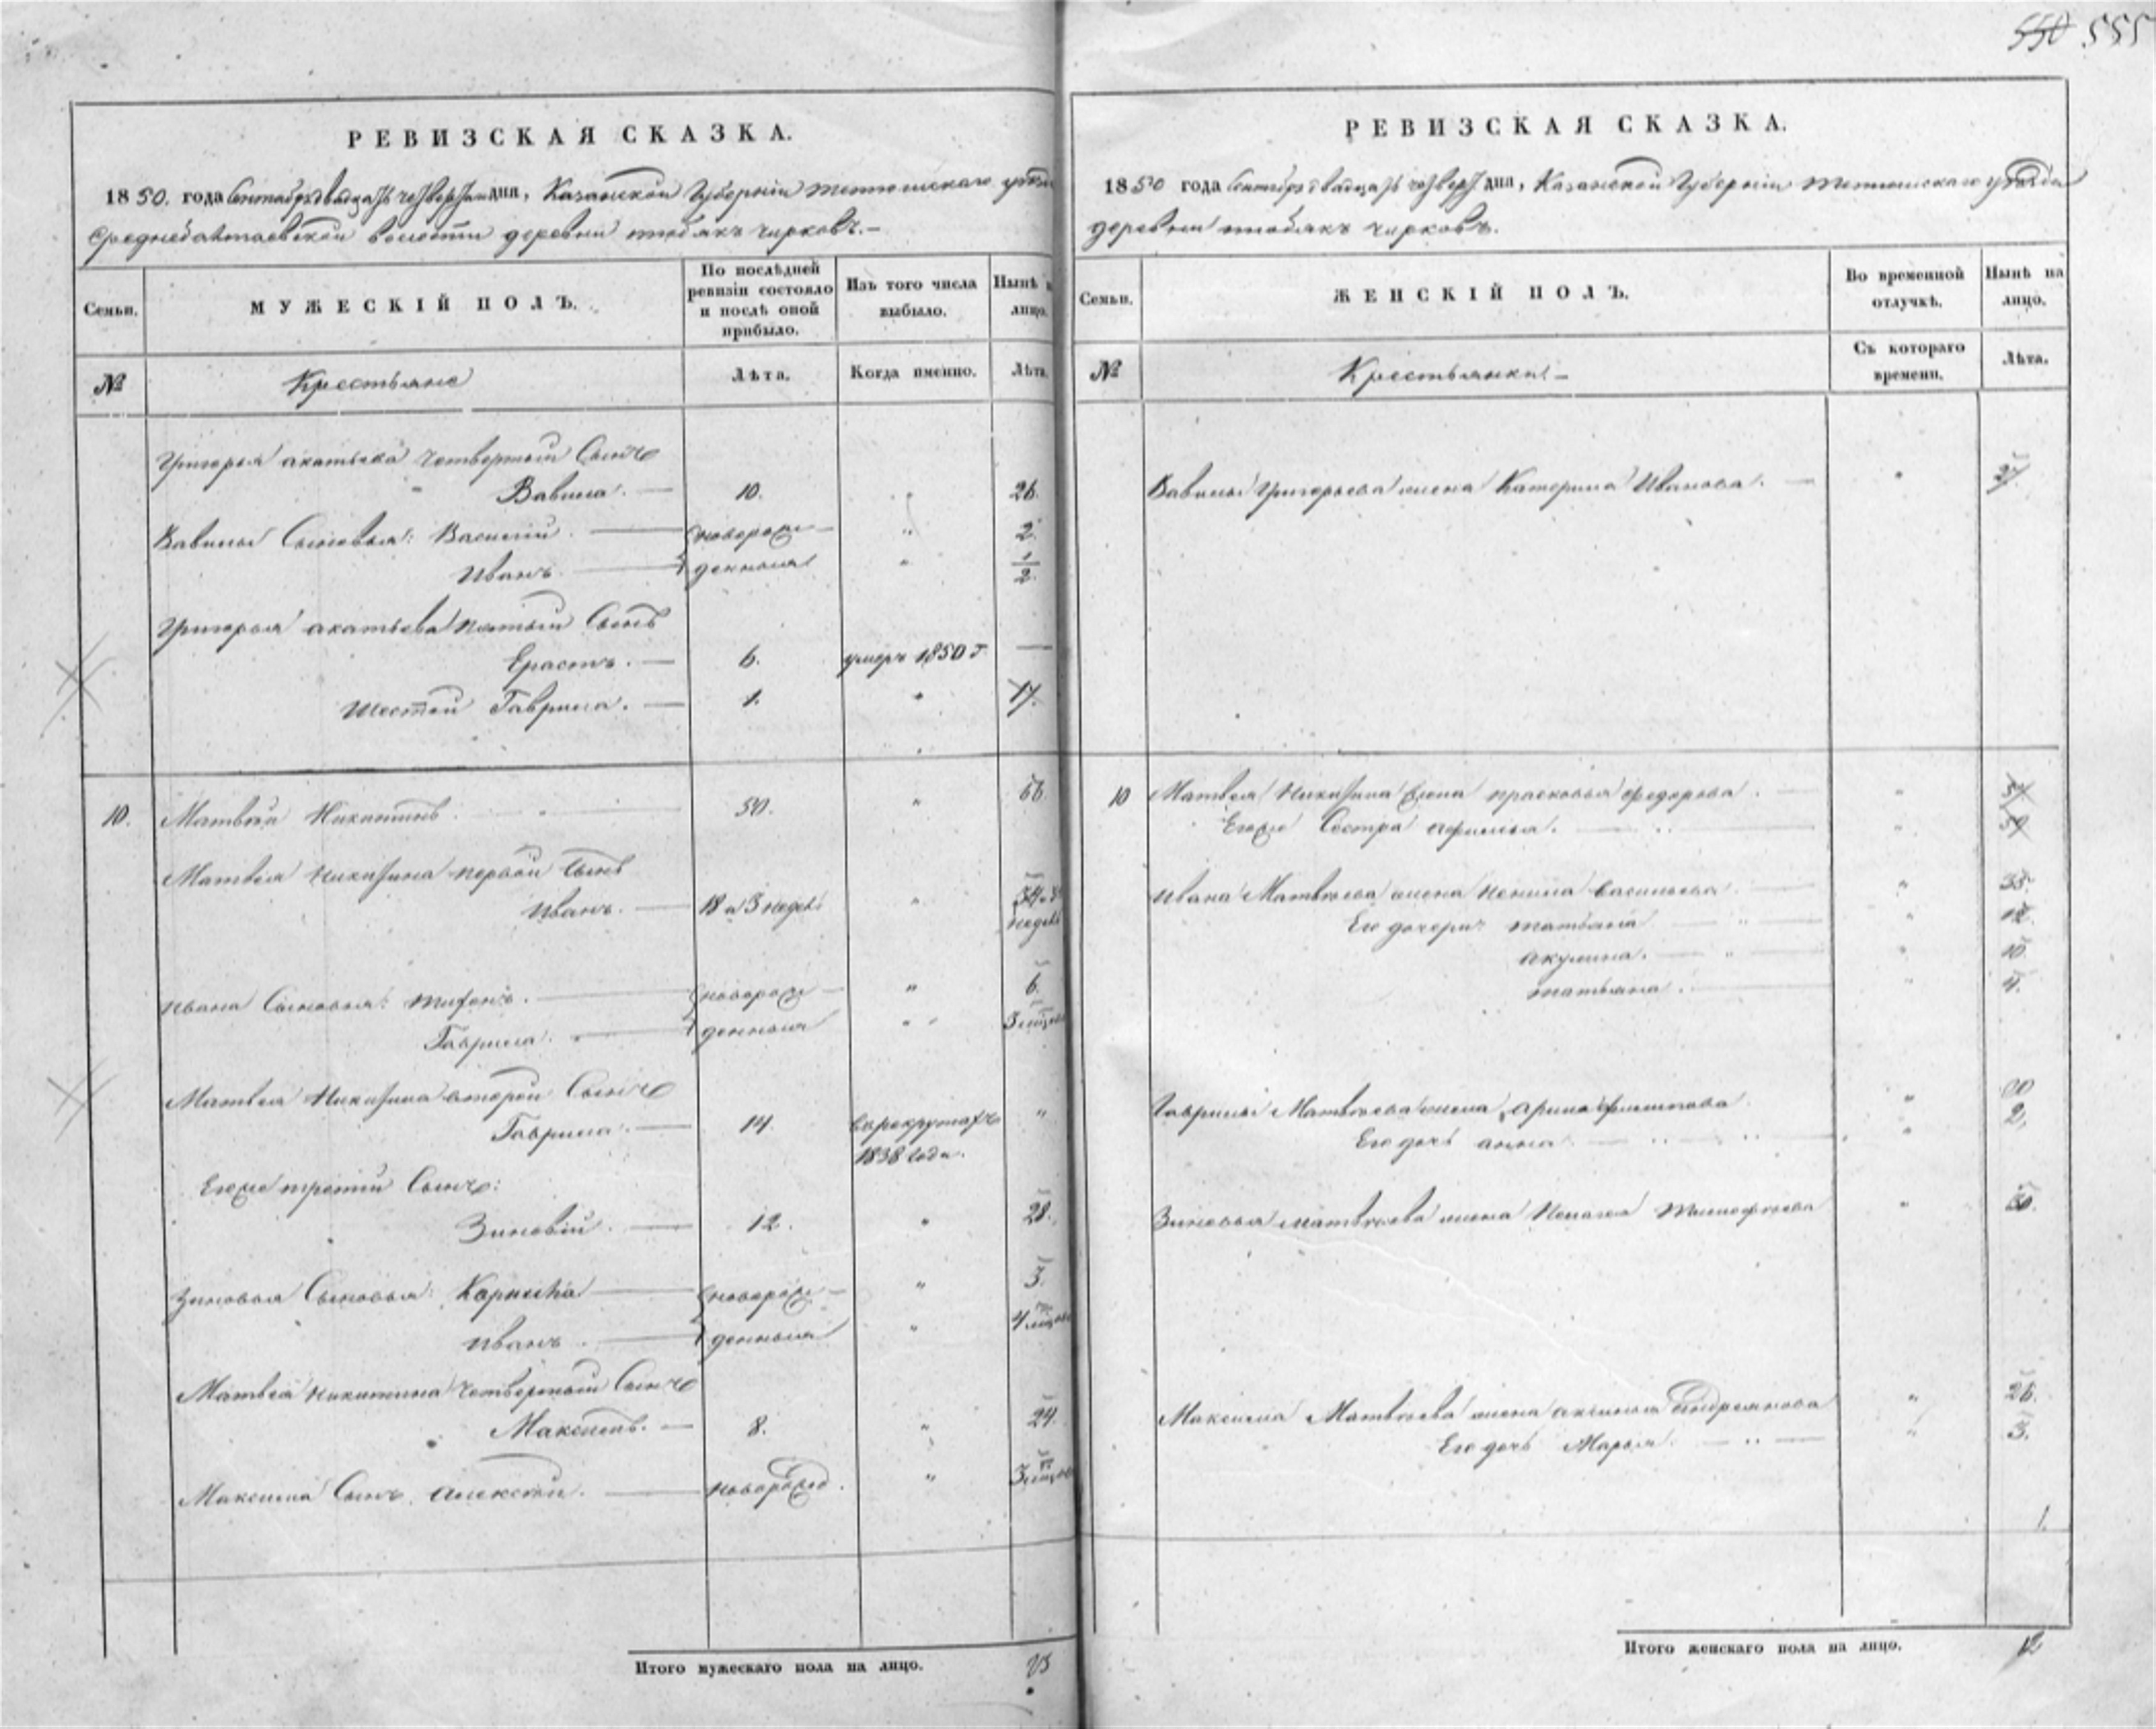 550 555
РЕВИЗСКАЯ СКАЗКА.
1850. года Сентября двадцать четвертаго дня, Казанской Губерніи Тетюшскаго уезда
Среднебалтаевской волости деревни тюбякъ чирковъ.–
Семьи.
МУЖЕСКІЙ ПОЛЪ.
По послѣдней ревизіи состояло и послѣ оной прибыло.
Изъ того числа выбыло.
Нынѣ на лицо.
№
Крестьяне
Лѣта.
Когда именно.
Лѣта.
Григорья акатьева четвертый Сынъ
Вавила. — 10. 26.
Вавилы Сыновья: Василій. — новорож– 2.
Иванъ — денныя 1/2.
Григорья акатьева пятый Сынъ
Ерастъ. — 6. умеръ 1850 г. —
Шестой Гаврила. — 1. 17.
10. Матвей Никитинъ. 50. 66
Матвея Никитина первой Сынъ
Иванъ. — 18 и 3 недел 34 и 3 недел
Ивана Сыновья: — новорож– 6.
Гаврила. — денныя 3 месяц
Матвея Никитина второй Сынъ
Гаврила. — 14. в рекрутахъ 1838 года.
Егоже третій Сынъ:
Зиновій. — 12. 28.
Зиновья Сыновья: — новорож– 3.
Иванъ. — денныя 4 месяц
Матвея Никитина четвертый Сынъ
Максимъ. — 8. 24.
Максима Сынъ Алексей. — новорожд. 3 месяц
Итого мужескаго пола на лицо.
РЕВИЗСКАЯ СКАЗКА.
1850 года Сентября двадцать четверт дня, Казанской Губерніи Тетюшскаго уезда
деревни тюбякъ чирковъ.
Семьи.
ЖЕНСКІЙ ПОЛЪ.
Во временной отлучкѣ.
Нынѣ на лицо.
№
Крестьянки.–
Съ котораго времени.
Лѣта.
Вавилы Григорьева жена Катерина Иванова. —
10 Матвея Никитина жена прасковья федорова.
Егоже Сестра афимья.
Ивана Матвеева жена Ненила васильева 35.
Его дочери: татьяна 12.
акулина. 10.
татьяна. 4.
Гаврилы Матвеева жена арина филипова
Его дочь анна 2.
Зиновья матвеева жена Пелагея тимофеева 30.
Максима Матвеева жена аксинья андреянова 26.
Его дочь Марья. 3.
1.
Итого женскаго пола на лицо. 12